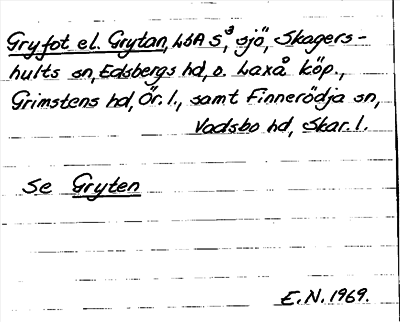 Gryfot el. Grytan, LSA S³, sjö, Skagers-
hults sn, Edsbergs hd, o. Laxå köp.,
Grimstens hd, Ör. l., samt Finnerödja sn,
Vadsbo hd, Skar. l.
Se Gryten
E.N. 1969.